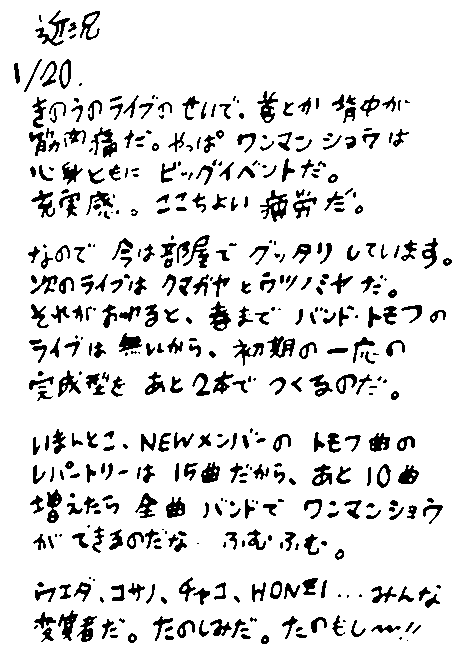 近況
1/20.
きのうのライブのせいで、首とか背中が
筋肉痛だ。やっぱワンマンショウは
心身ともにビッグイベントだ。
充実感。ここちよい疲労だ。
なので今は部屋でグッタリしています。
次のライブはクマガヤとウツノミヤだ。
それがおわると、春までバンド・トモフの
ライブは無いから、初期の一応の
完成型をあと2本でつくるのだ。
いまんとこ、NEWメンバーのトモフ曲の
レパートリーは15曲だから、あと10曲
増えたら全曲バンドでワンマンショウ
ができるのだな ふむふむ。
ウエダ、コサノ、チャコ、HONZI...みんな
変質者だ。たのしみだ。たのもし〜!!